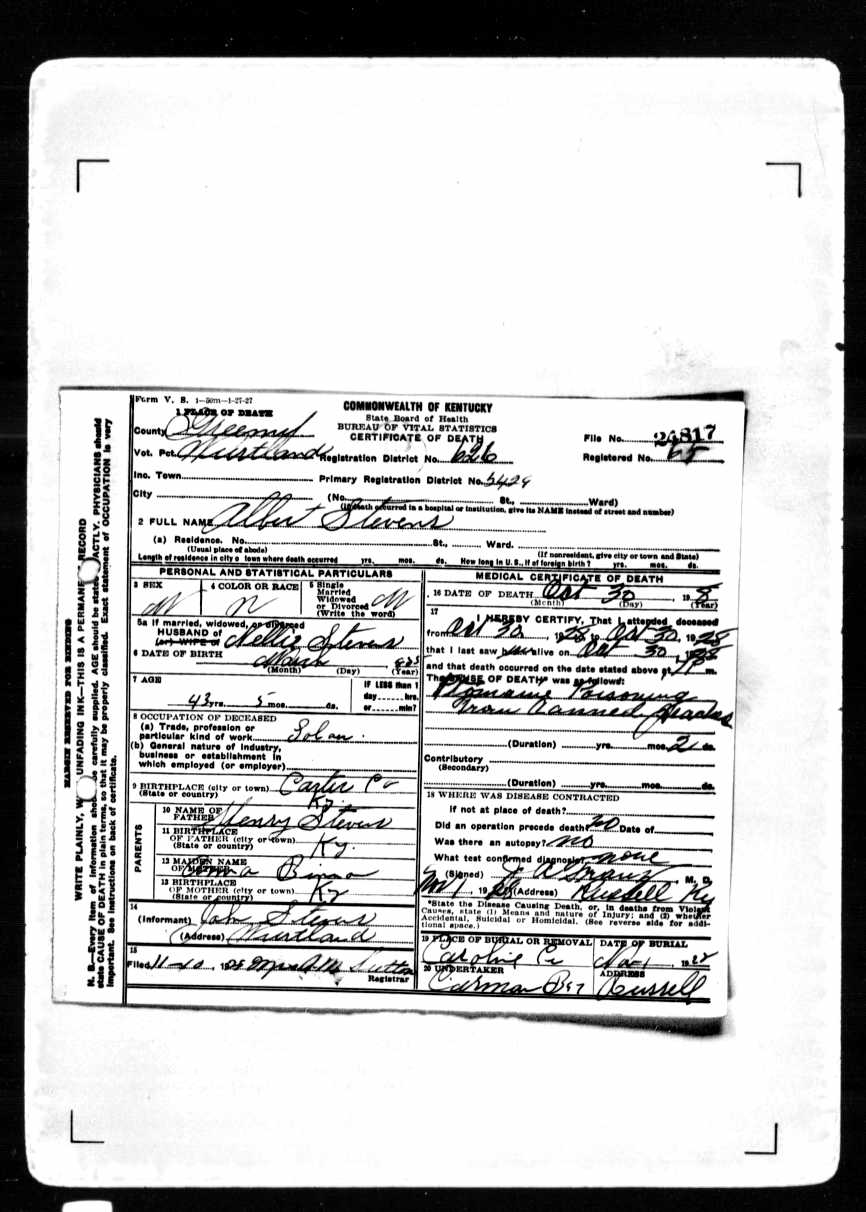 Form V. S. 1—50m—1-27-27
COMMONWEALTH OF KENTUCKY
State Board of Health
BUREAU OF VITAL STATISTICS
CERTIFICATE OF DEATH
1 PLACE OF DEATH
County Greenup
File No. 24817
Vot. Pct. Registration District No. 626 Registered No. 65
Inc. Town Primary Registration District No. 5429
City (No. St., Ward)
(If death occurred in a hospital or institution, give its NAME instead of street and number)
2 FULL NAME Albert Stevens
(a) Residence. No. St., Ward.
(Usual place of abode) (If nonresident, give city or town and State)
Length of residence in city or town where death occurred yrs. mos. ds. How long in U. S., if of foreign birth? yrs. mos. ds.
PERSONAL AND STATISTICAL PARTICULARS
3 SEX M
4 COLOR OR RACE
5 Single
Married
Widowed
or Divorced
(Write the word) M
5a If married, widowed, or divorced
HUSBAND of
(or) WIFE of Nellie Stevens
6 DATE OF BIRTH March
(Month) (Day) (Year)
7 AGE
43 yrs. 5 mos. ds.
IF LESS than 1
day hrs.
or min?
8 OCCUPATION OF DECEASED
(a) Trade, profession or
particular kind of work
(b) General nature of industry,
business or establishment in
which employed (or employer)
9 BIRTHPLACE (city or town) Carter Co
(State or country) Ky.
PARENTS
10 NAME OF
FATHER Henry Stevens
11 BIRTHPLACE
OF FATHER (city or town)
(State or country) Ky.
12 MAIDEN NAME
OF MOTHER
13 BIRTHPLACE
OF MOTHER (city or town)
(State or country) Ky
14
(Informant) Stevens
(Address)
15
Filed 11-10, 1928 Mrs A M Sutton
Registrar
MEDICAL CERTIFICATE OF DEATH
16 DATE OF DEATH Oct 30, 1928
(Month) (Day) (Year)
17
I HEREBY CERTIFY, That I attended deceased
from Oct 30, 1928 to Oct 30, 1928
that I last saw him alive on Oct 30, 1928
and that death occurred on the date stated above at m.
The CAUSE OF DEATH* was as follows:
Ptomaine Poisoning
from Canned Peaches
(Duration) yrs. mos. 2 ds.
Contributory
(Secondary)
(Duration) yrs. mos. ds.
18 WHERE WAS DISEASE CONTRACTED
If not at place of death?
Did an operation precede death? No Date of
Was there an autopsy? No
What test confirmed diagnosis? none
(Signed) M. D.
Nov 1, 1928 (Address) Russell Ky
*State the Disease Causing Death, or, in deaths from Violent
Causes, state (1) Means and nature of Injury; and (2) whether
Accidental, Suicidal or Homicidal. (See reverse side for addi-
tional space.)
19 PLACE OF BURIAL OR REMOVAL DATE OF BURIAL
1928
20 UNDERTAKER ADDRESS
Russell
MARGIN RESERVED FOR BINDING
WRITE PLAINLY, UNFADING INK—THIS IS A PERMANENT RECORD
N. B.—Every item of information should be carefully supplied. AGE should be stated EXACTLY. PHYSICIANS should
state CAUSE OF DEATH in plain terms, so that it may be properly classified. Exact statement of OCCUPATION is very
important. See instructions on back of certificate.